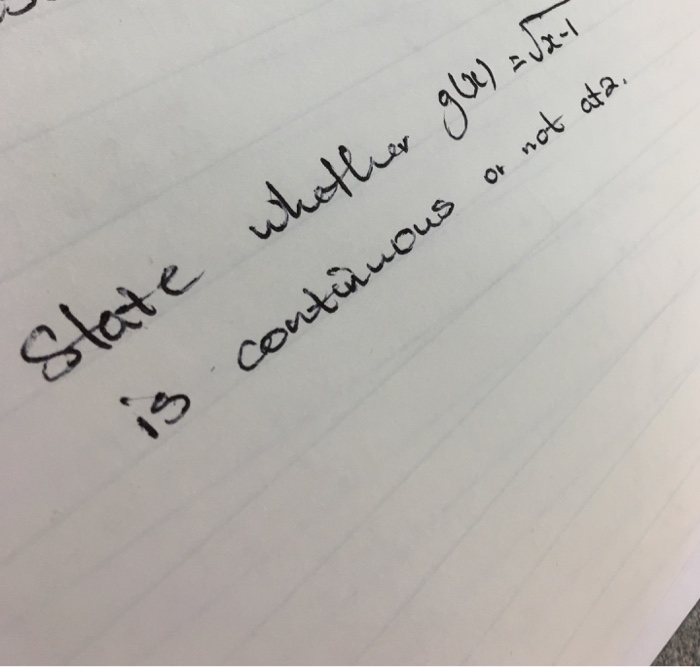 State whether g(x) = √x-1
is continuous or not at 2.